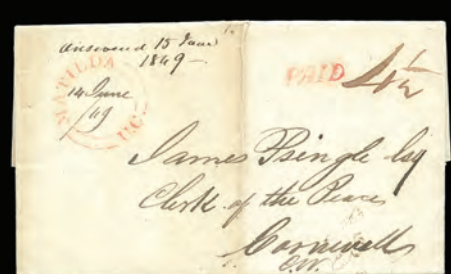 answered 15 June
1849 —
MATILDA
14 June
/49
U.C.
PAID 4½
James Pringle Esq
Clerk of the Peace
Cornwall
C.W.